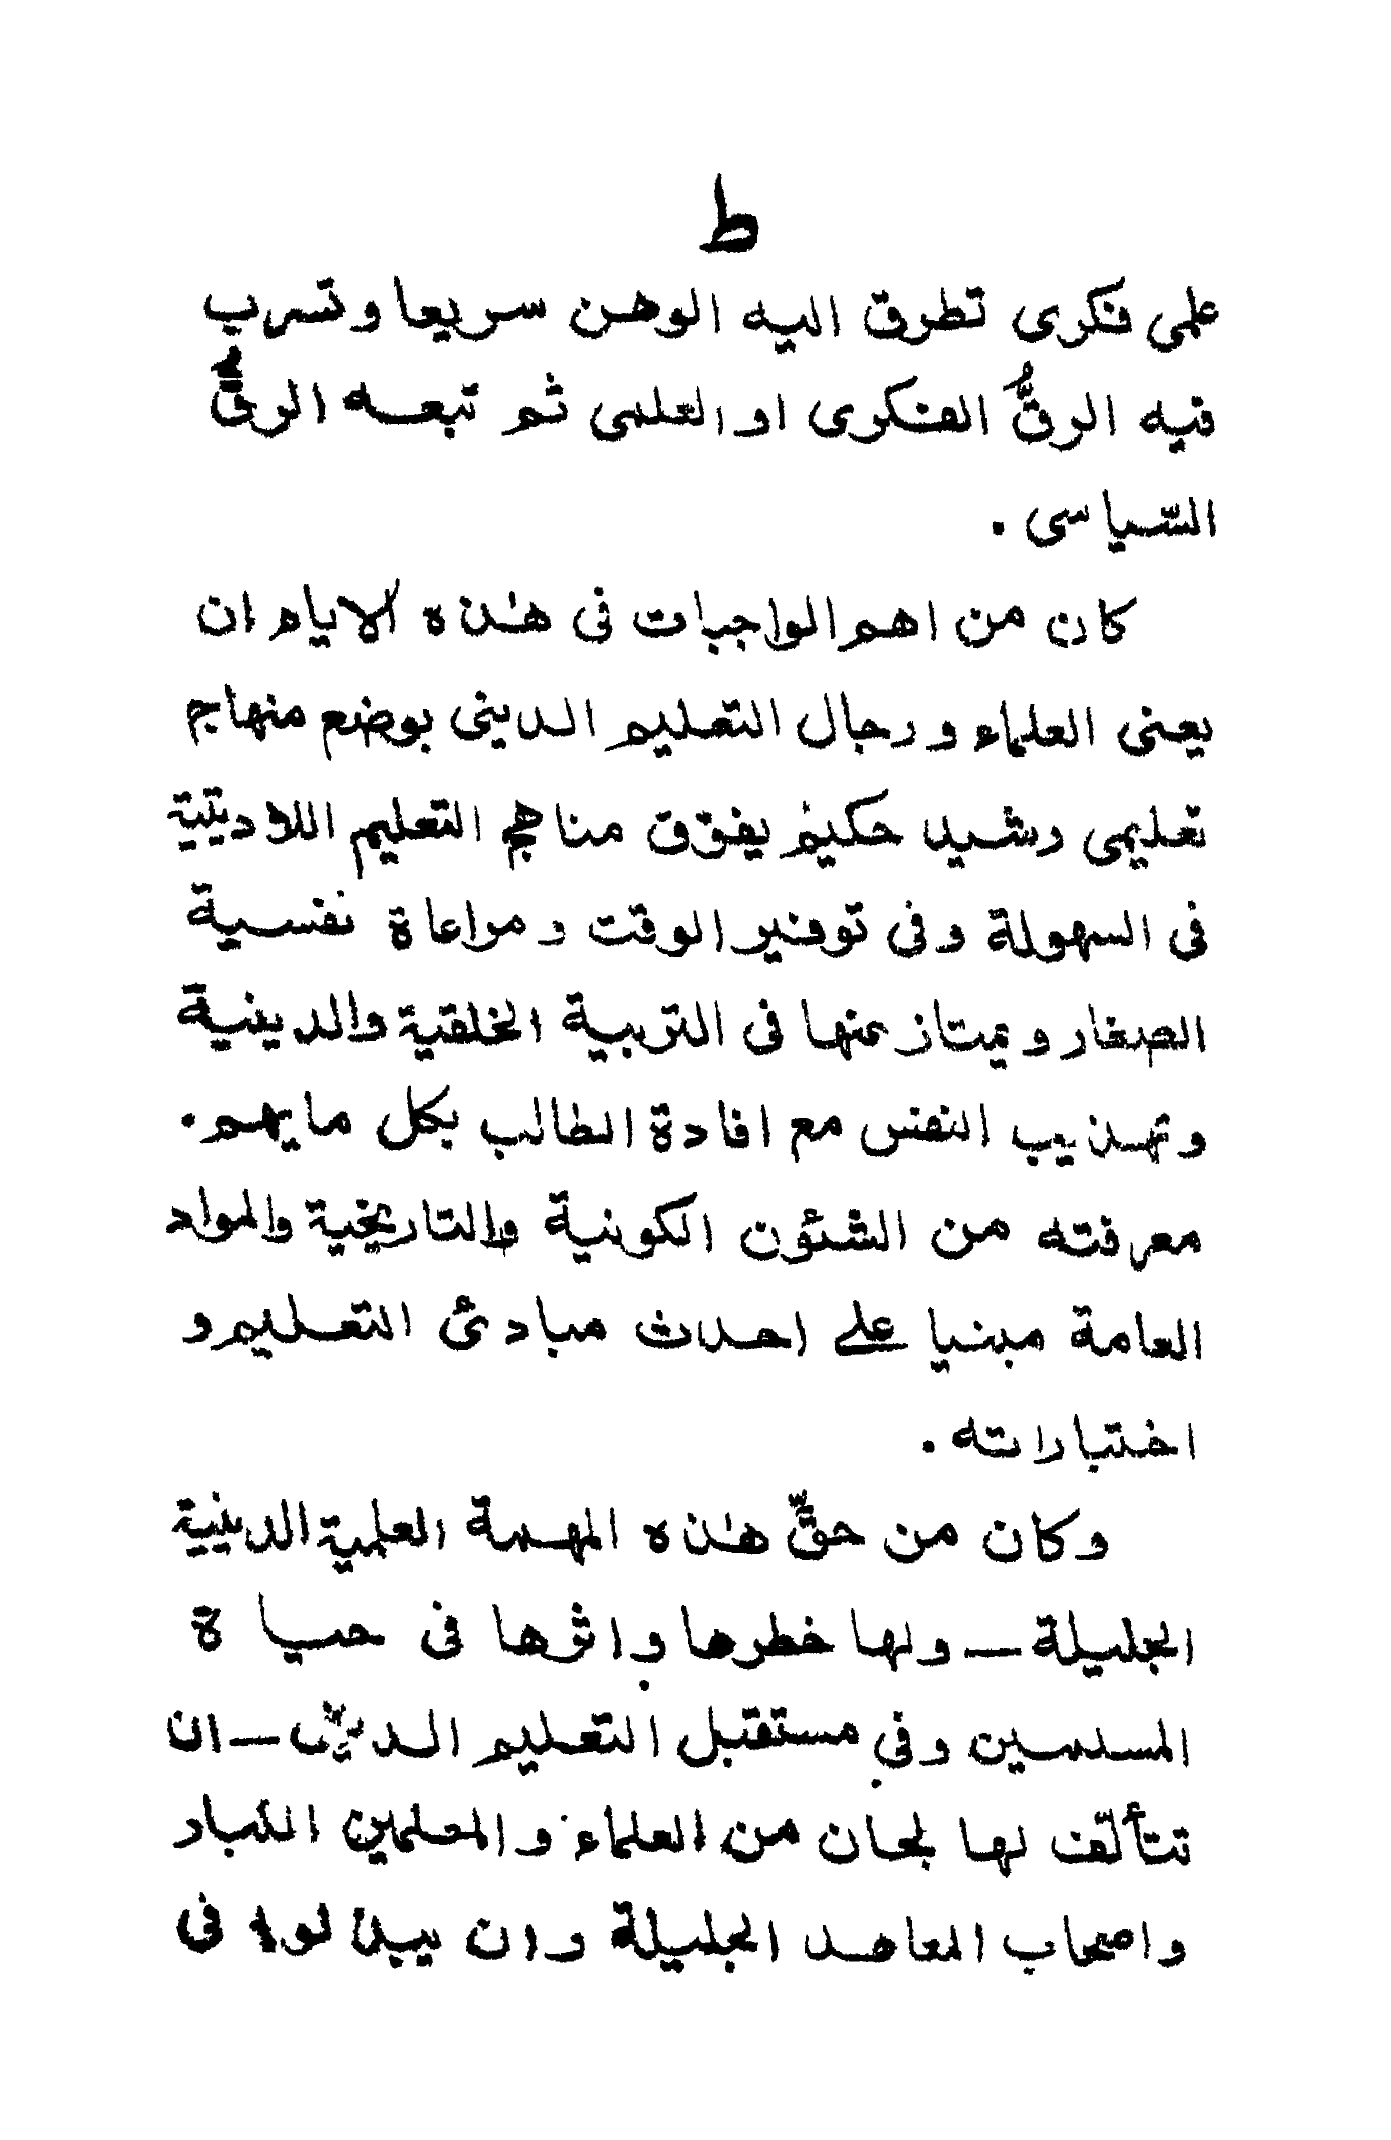 ط
علمى فكرى تطرق اليه الوهن سريعا وتسرب
فيه الرقىُّ الفكرى او العلمى ثم تبعه الرقىُّ
السّياسى .
كان من اهم الواجبات فى هٰذه الايام ان
يعنى العلماء ورجال التعليم الدينى بوضع منهاج
تعليمى رشيد حكيم يفوق مناهج التعليم اللادينية
فى السهولة وفى توفير الوقت ومراعاة نفسية
الصغار ويمتاز عنها فى التربية الخلقية والدينية
وتهذيب النفس مع افادة الطالب بكل ما يهم .
معرفته من الشئون الكونية والتاريخية والمواد
العامة مبنيا على احدث مبادئ التعليم و
اختباراته .
وكان من حقِّ هٰذه المهمة العلمية الدينية
الجليلة — ولها خطرها واثرها فى حياة
المسلمين وفى مستقبل التعليم الدينى — ان
تتألّف لها لجان من العلماء والمعلمين الكبار
واصحاب المعاهد الجليلة وان يبذلوا فى